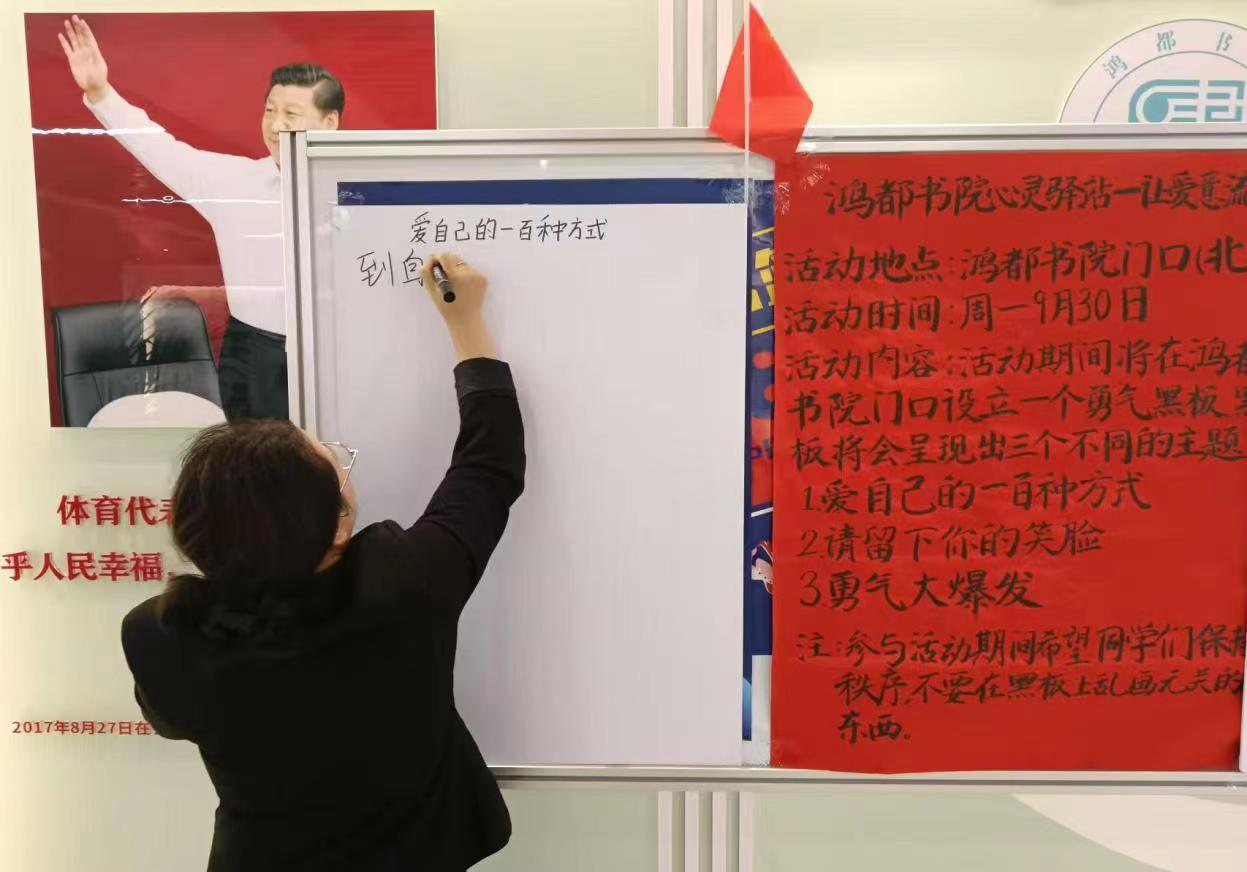 鸿都书
爱自己的一百种方式
到
鸿都书院心灵驿站一让爱意流
活动地点:鸿都书院门口(北
活动时间:周一9月30日
活动内容:活动期间将在鸿都
书院门口设立一个勇气黑板,黑
板将会呈现出三个不同的主题
1.爱自己的一百种方式
2.请留下你的笑脸
3.勇气大爆发
注:参与活动期间希望同学们保持
秩序,不要在黑板上乱画无关的
东西。
体育代表
乎人民幸福,
2017年8月27日在